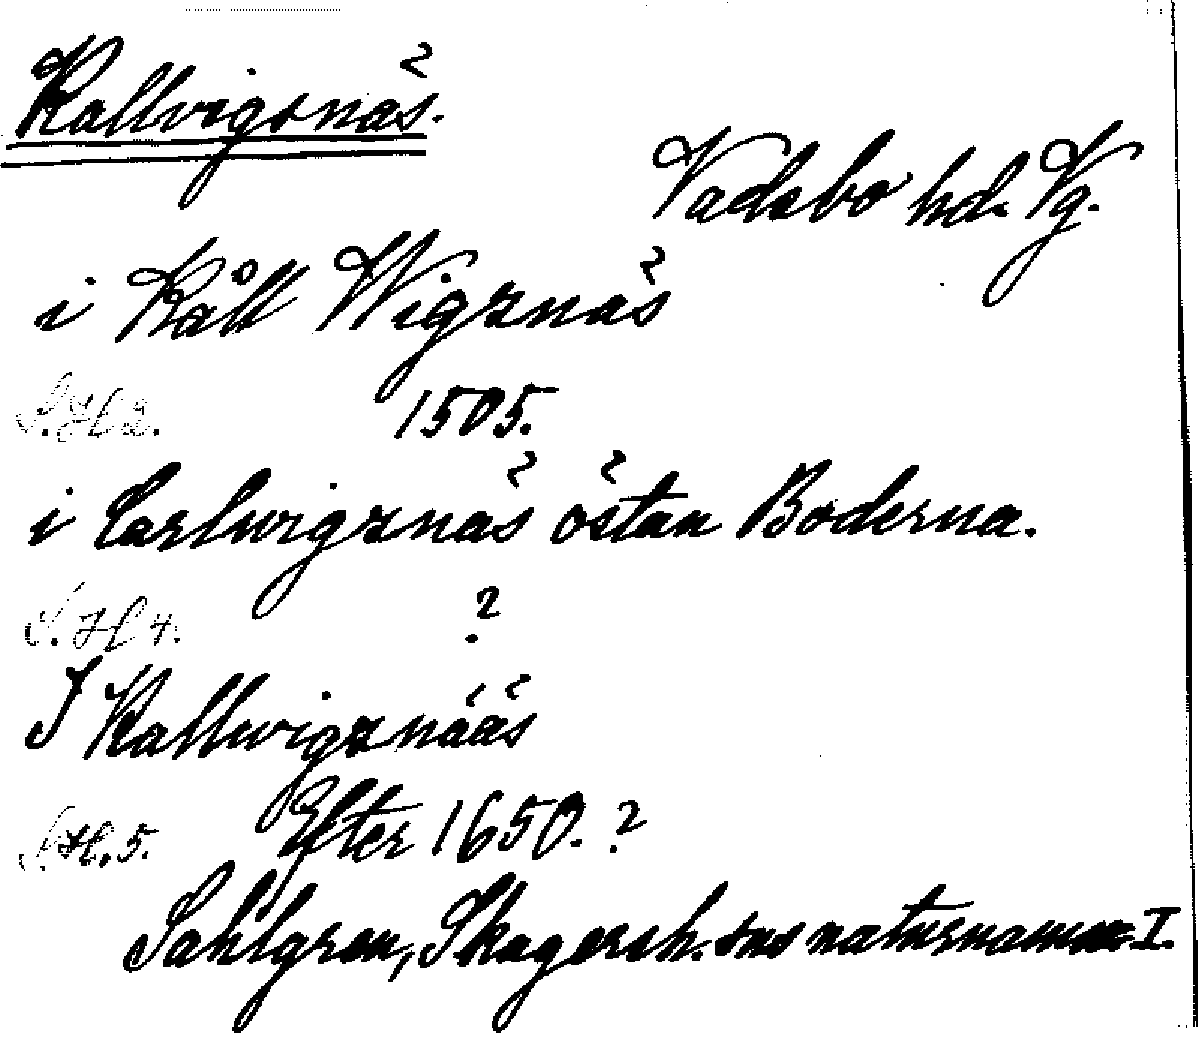 Kallvigsnäs.
Vadsbo hd. Vg.
i Kåll Wigznäs
S.H 2. 1505.
i Carlwigznäs östan Boderna.
S.H 4. ?
I Kallwigznääs
S.H. 5. Efter 1650. ?
Sahlgren, Skagersh. sns naturnamn I.